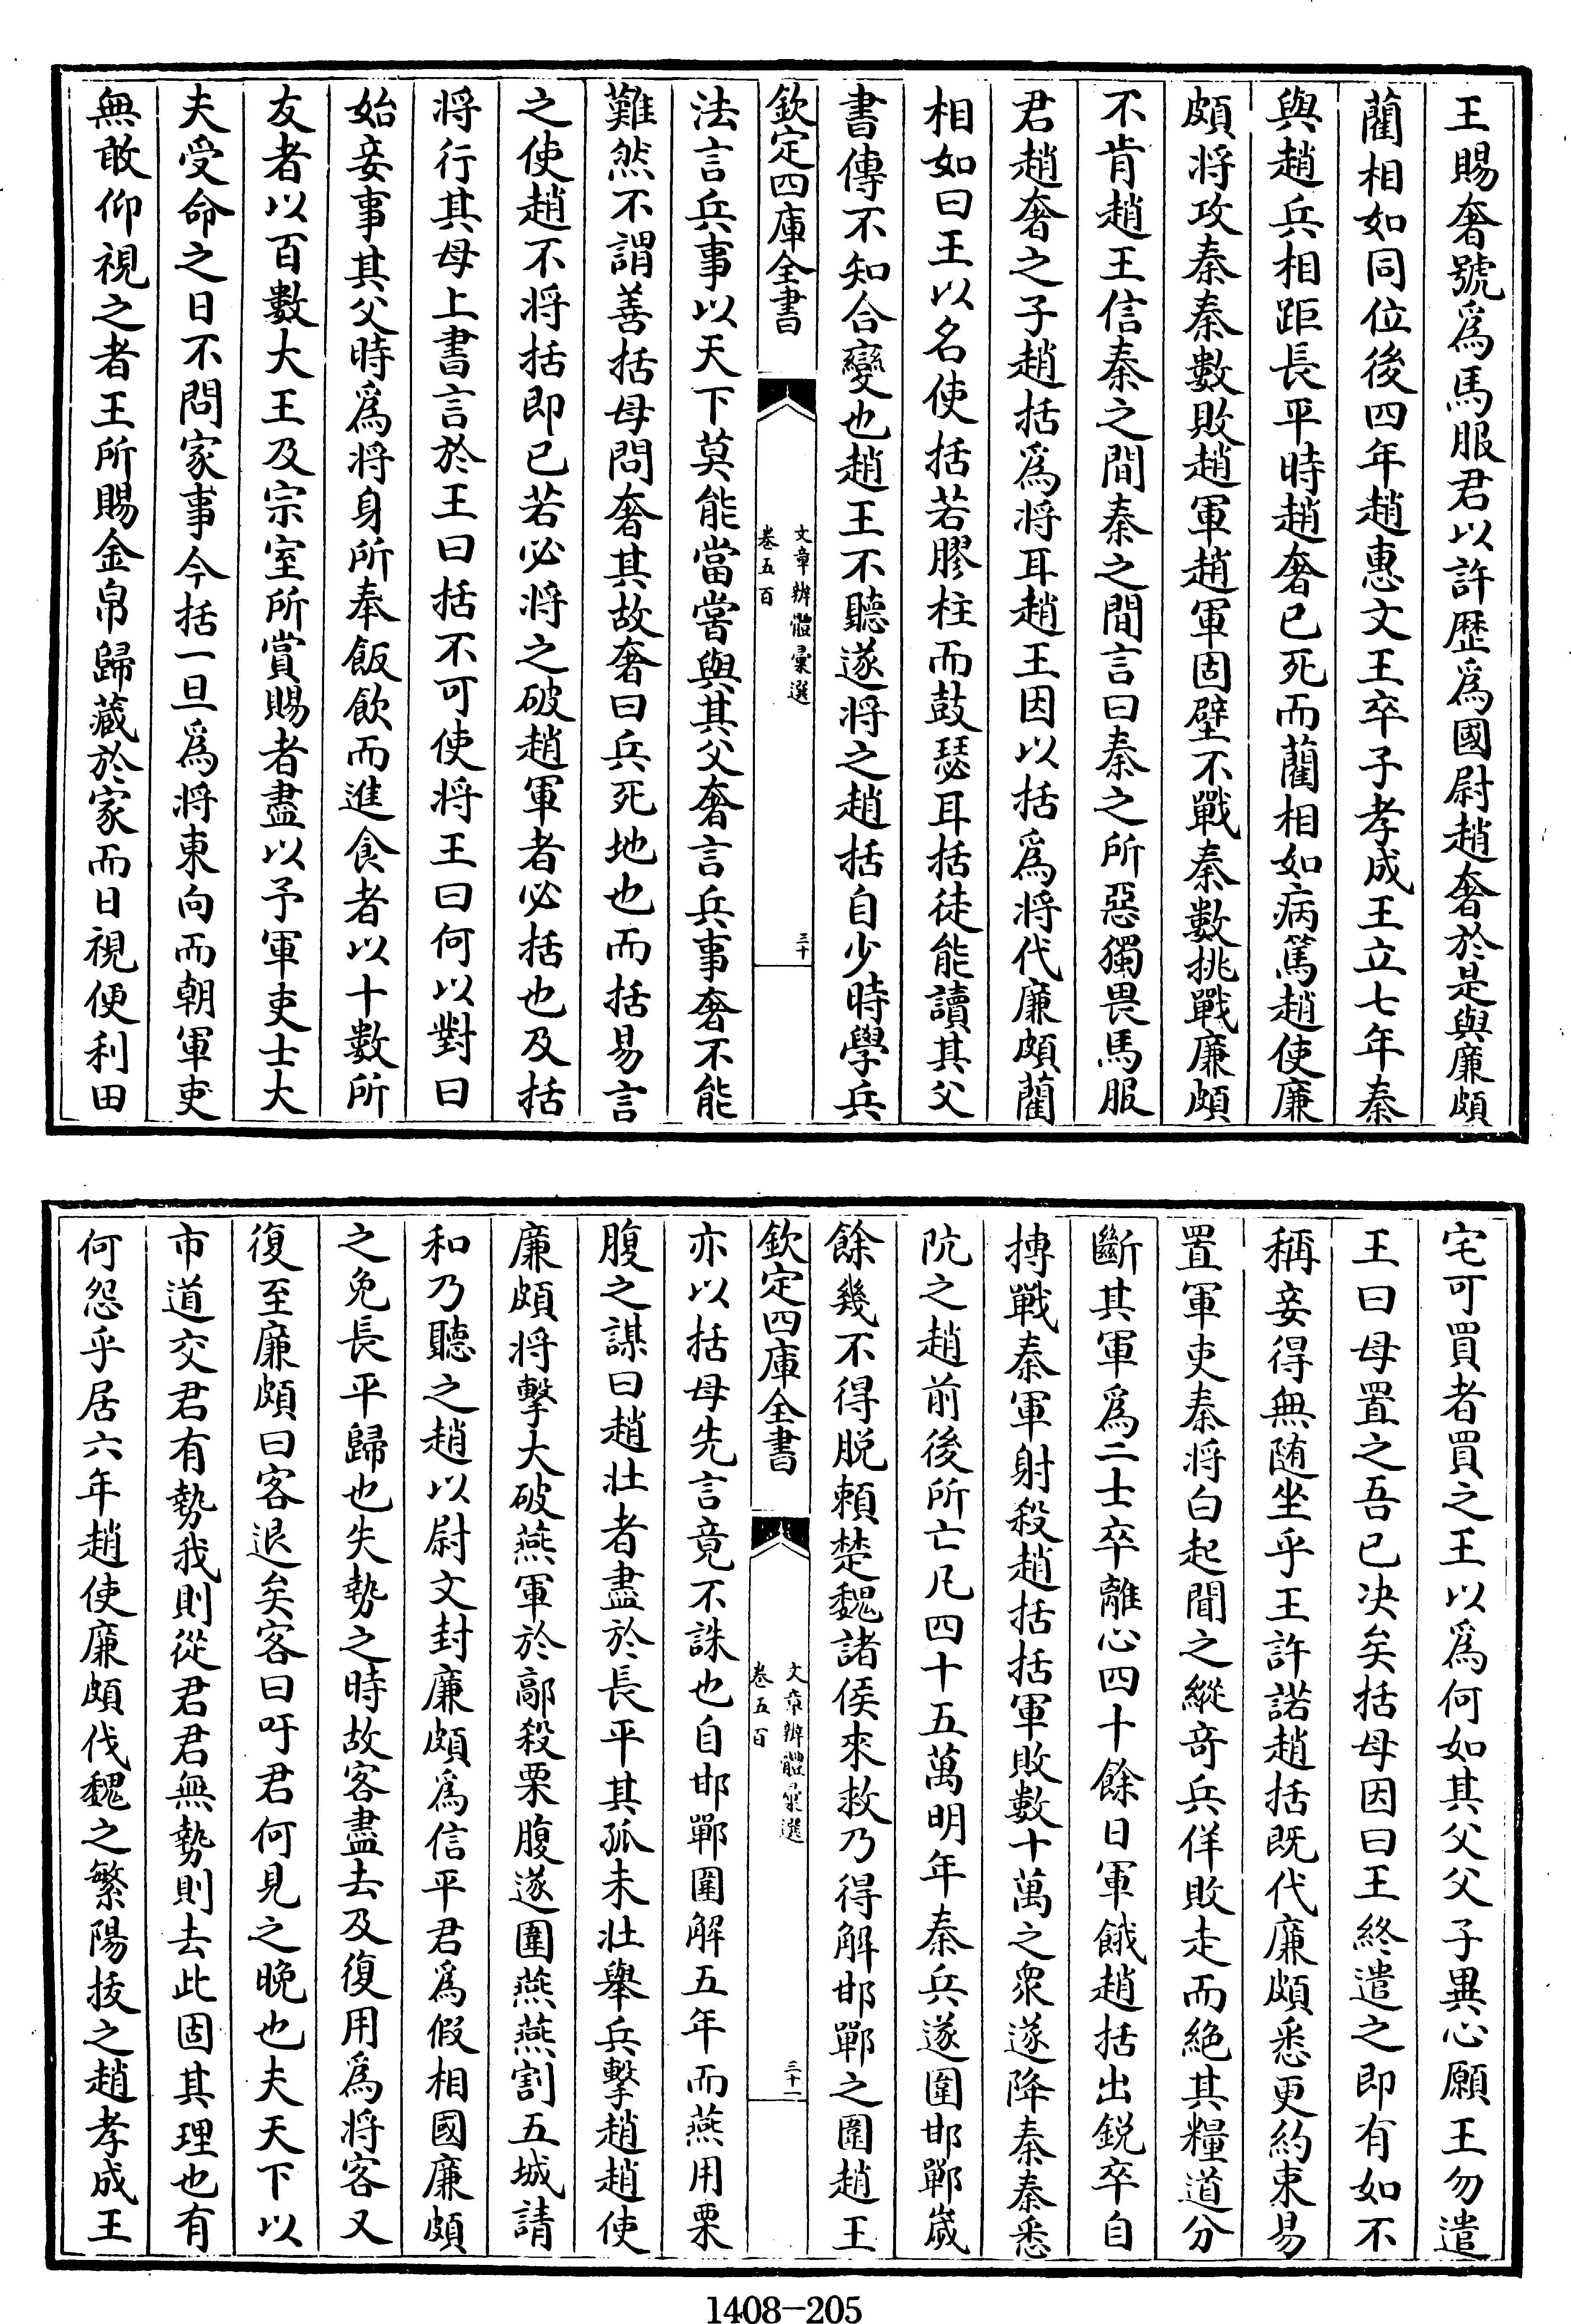 王賜奢號爲馬服君以許歴爲國尉趙奢於是與廉頗
藺相如同位後四年趙惠文王卒子孝成王立七年秦
與趙兵相距長平時趙奢已死而藺相如病篤趙使廉
頗将攻秦秦數敗趙軍趙軍固壁不戰秦數挑戰廉頗
不肯趙王信秦之間秦之間言曰秦之所惡獨畏馬服
君趙奢之子趙括爲将耳趙王因以括爲将代廉頗藺
相如曰王以名使括若膠柱而鼓瑟耳括徒能讀其父
書傳不知合變也趙王不聽遂将之趙括自少時學兵
欽定四庫全書
文章辨體彚選
卷五百
三十
法言兵事以天下莫能當嘗與其父奢言兵事奢不能
難然不謂善括母問奢其故奢曰兵死地也而括易言
之使趙不将括即已若必将之破趙軍者必括也及括
将行其母上書言於王曰括不可使将王曰何以對曰
始妾事其父時爲将身所奉飯飲而進食者以十數所
友者以百數大王及宗室所賞賜者盡以予軍吏士大
夫受命之日不問家事今括一旦爲将東向而朝軍吏
無敢仰視之者王所賜金帛歸藏於家而日視便利田
宅可買者買之王以爲何如其父父子異心願王勿遣
王曰母置之吾已决矣括母因曰王終遣之即有如不
稱妾得無随坐乎王許諾趙括既代廉頗悉更約束易
置軍吏秦将白起聞之縱奇兵佯敗走而絶其糧道分
斷其軍爲二士卒離心四十餘日軍餓趙括出鋭卒自
搏戰秦軍射殺趙括括軍敗數十萬之衆遂降秦秦悉
阬之趙前後所亡凡四十五萬明年秦兵遂圍邯鄲歳
餘幾不得脱賴楚魏諸侯來救乃得解邯鄲之圍趙王
欽定四庫全書
文章辨體彚選
卷五百
三十一
亦以括母先言竟不誅也自邯鄲圍解五年而燕用栗
腹之謀曰趙壯者盡於長平其孤未壯舉兵擊趙趙使
廉頗将擊大破燕軍於鄗殺栗腹遂圍燕燕割五城請
和乃聽之趙以尉文封廉頗爲信平君爲假相國廉頗
之免長平歸也失勢之時故客盡去及復用爲将客又
復至廉頗曰客退矣客曰吁君何見之晚也夫天下以
市道交君有勢我則從君君無勢則去此固其理也有
何怨乎居六年趙使廉頗伐魏之繁陽拔之趙孝成王
1408-205